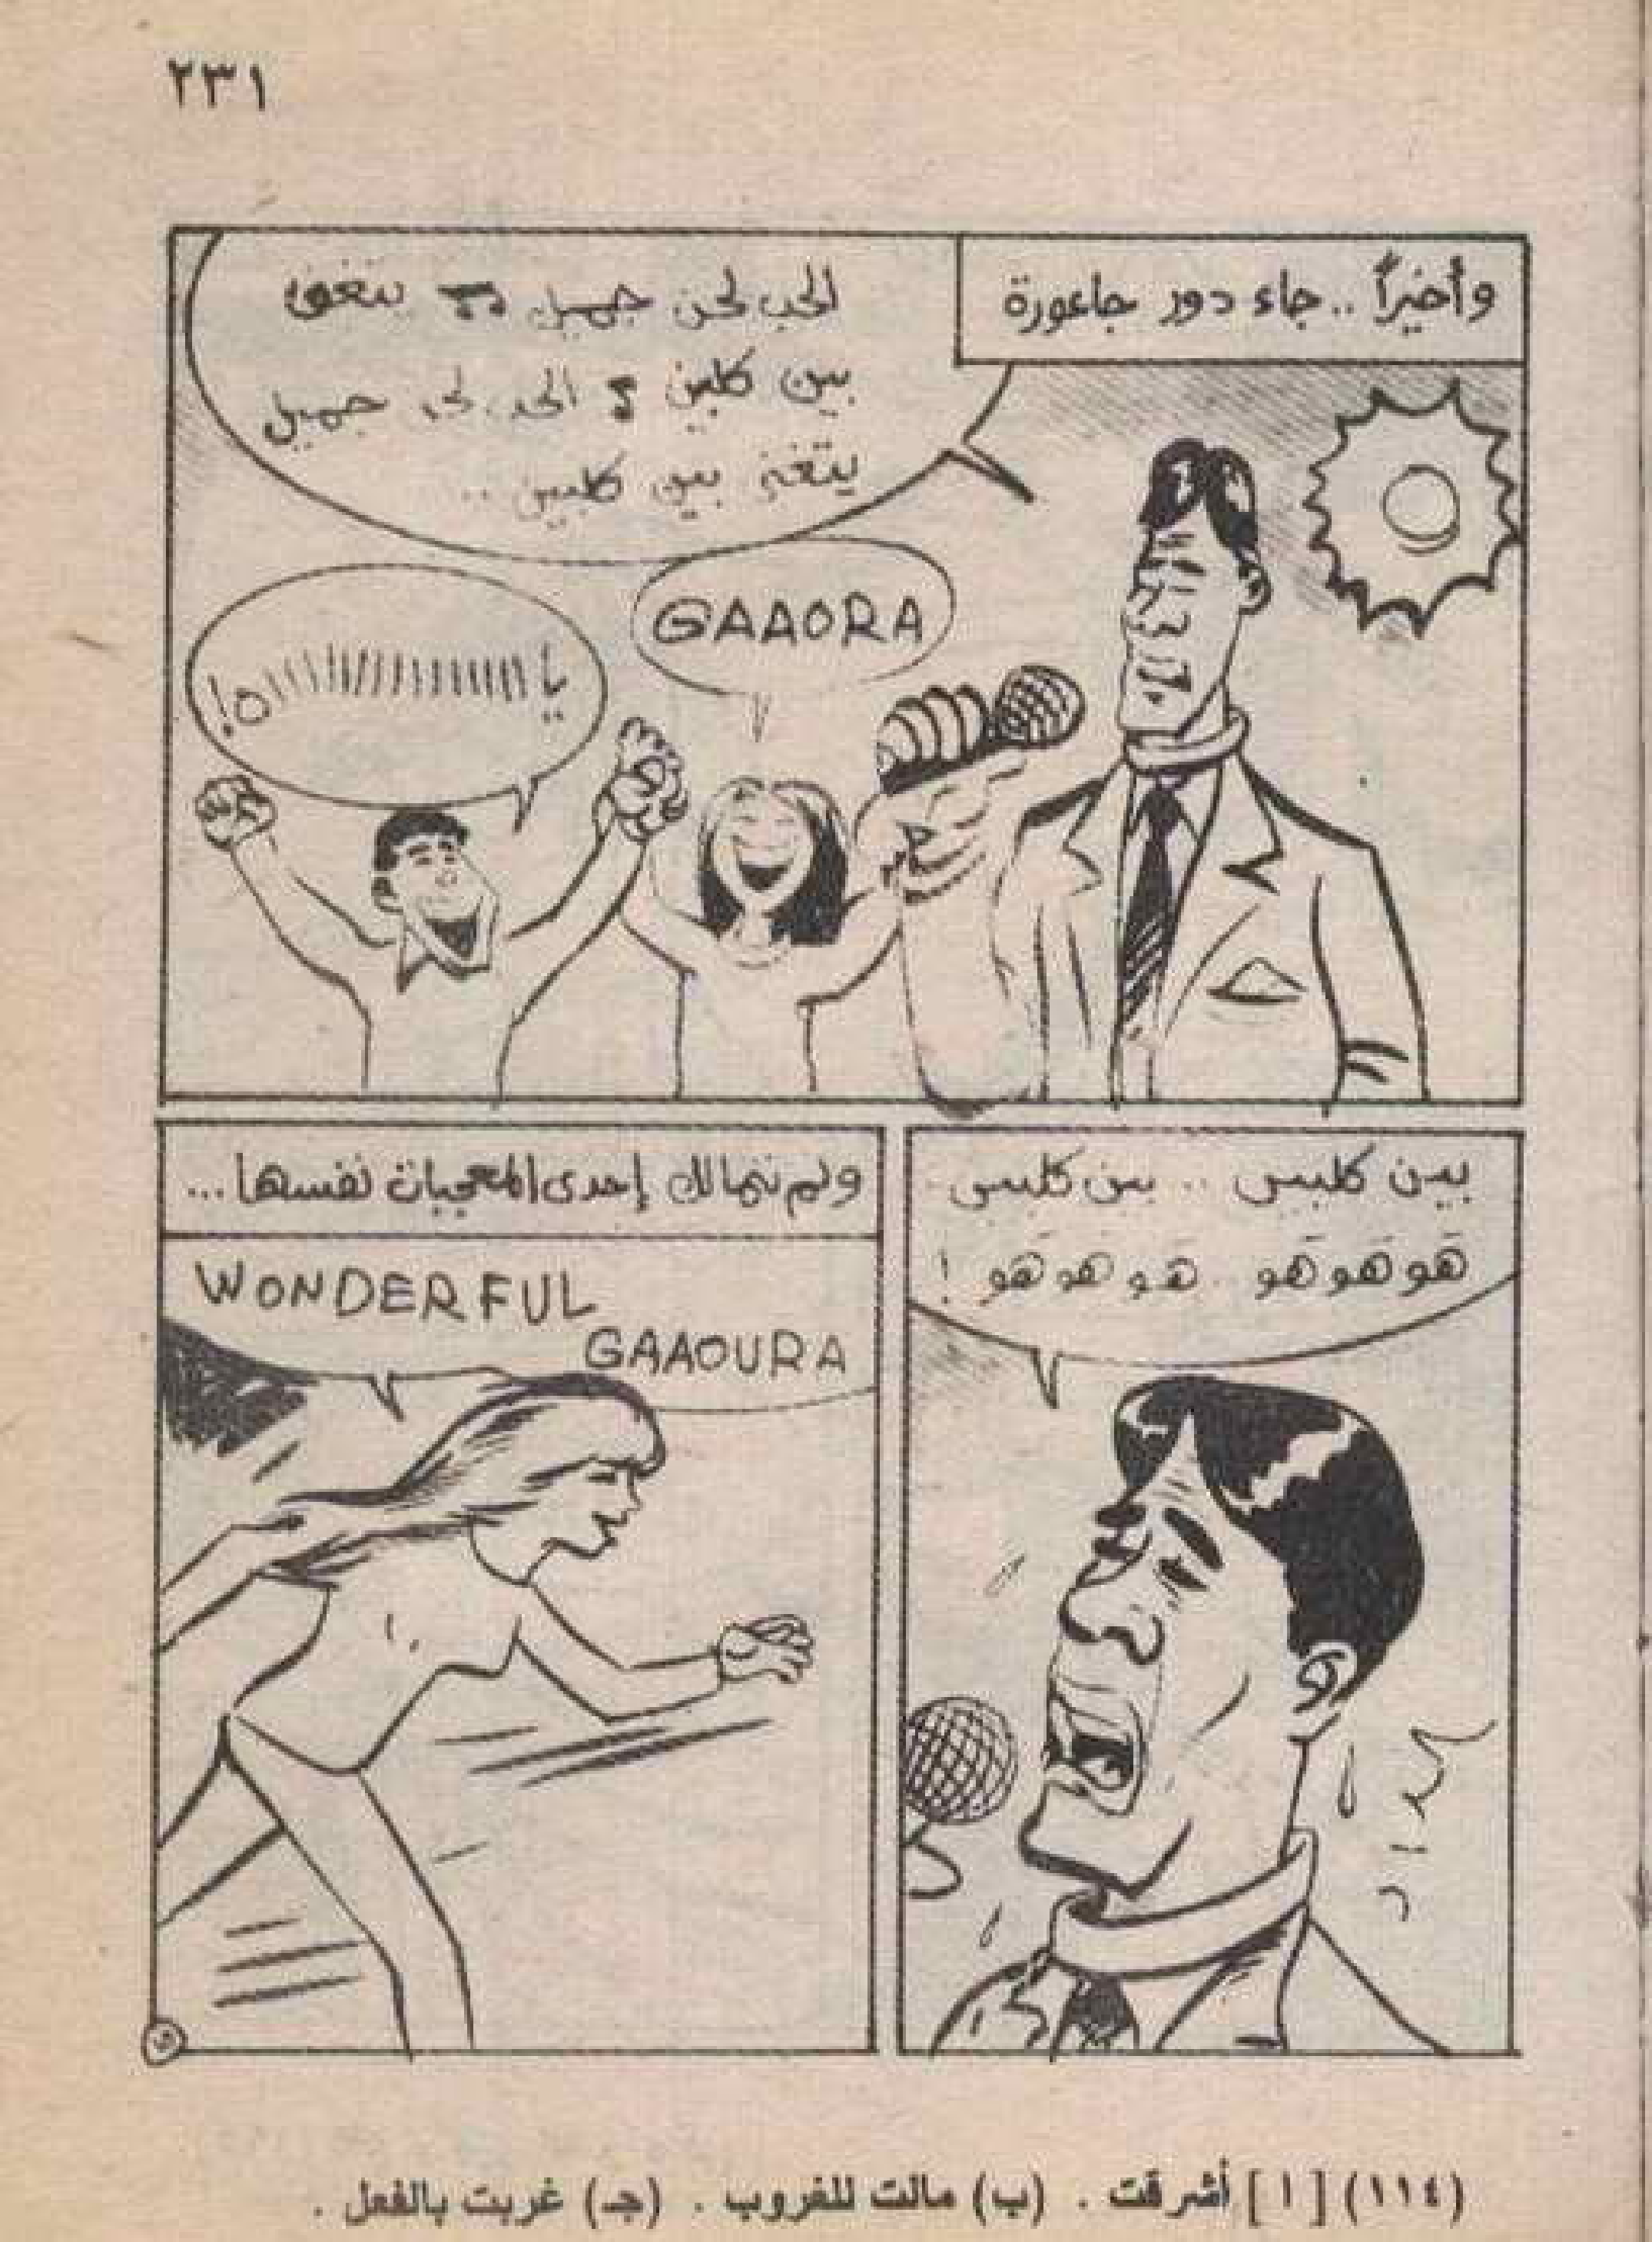 ٢٣١
وأخيراً .. جاء دور جاعورة
الحب لحن جميل يتغنى
بين كلبين جميل
يتغنى بين كلبين ..
GAAORA
يااااااااااااااااه!
بين كلبين .. بين كلبين
هَو هَو هَو .. هَو هَو هَو !
ولم تتمالك إحدى المعجبات نفسها ...
WONDERFUL
GAAOURA
(١١٤) [ أ ] أشرقت . (ب) مالت للغروب . (جـ) غربت بالفعل .